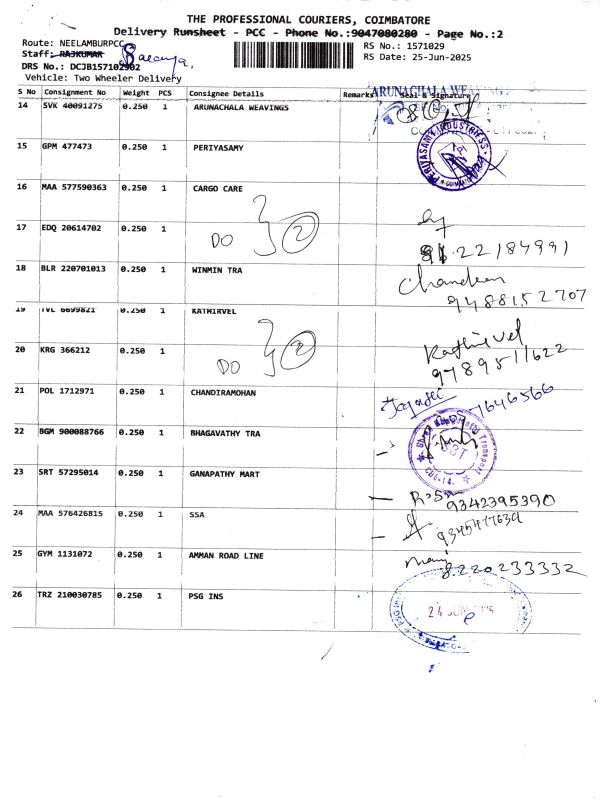 THE PROFESSIONAL COURIERS, COIMBATORE
Delivery Runsheet - PCC - Phone No.:9047080280 - Page No.:2
Route: NEELAMBURPCC
RS No.: 1571029
Staff: RAJKUMAR
RS Date: 25-Jun-2025
DRS No.: DCJB157102902
Vehicle: Two Wheeler Delivery
S No Consignment No Weight PCS Consignee Details Remarks Seal & Signature
14 SVK 40091275 0.250 1 ARUNACHALA WEAVINGS
ARUNACHALA
15 GPM 477473 0.250 1 PERIYASAMY
PERIYASAMY INDUSTRIESS
16 MAA 577590363 0.250 1 CARGO CARE
17 EDQ 20614702 0.250 1 DO 2
22184991
18 BLR 220701013 0.250 1 WINMIN TRA
9488152707
19 TVL 6699821 0.250 1 KATHIRVEL
Kathirvel
20 KRG 366212 0.250 1 DO 2
9789511622
21 POL 1712971 0.250 1 CHANDIRAMOHAN
7646566
22 BGM 900088766 0.250 1 BHAGAVATHY TRA
SBT
23 SRT 57295014 0.250 1 GANAPATHY MART
9342395390
24 MAA 576426815 0.250 1 SSA
25 GYM 1131072 0.250 1 AMMAN ROAD LINE
8220233332
26 TRZ 210030785 0.250 1 PSG INS